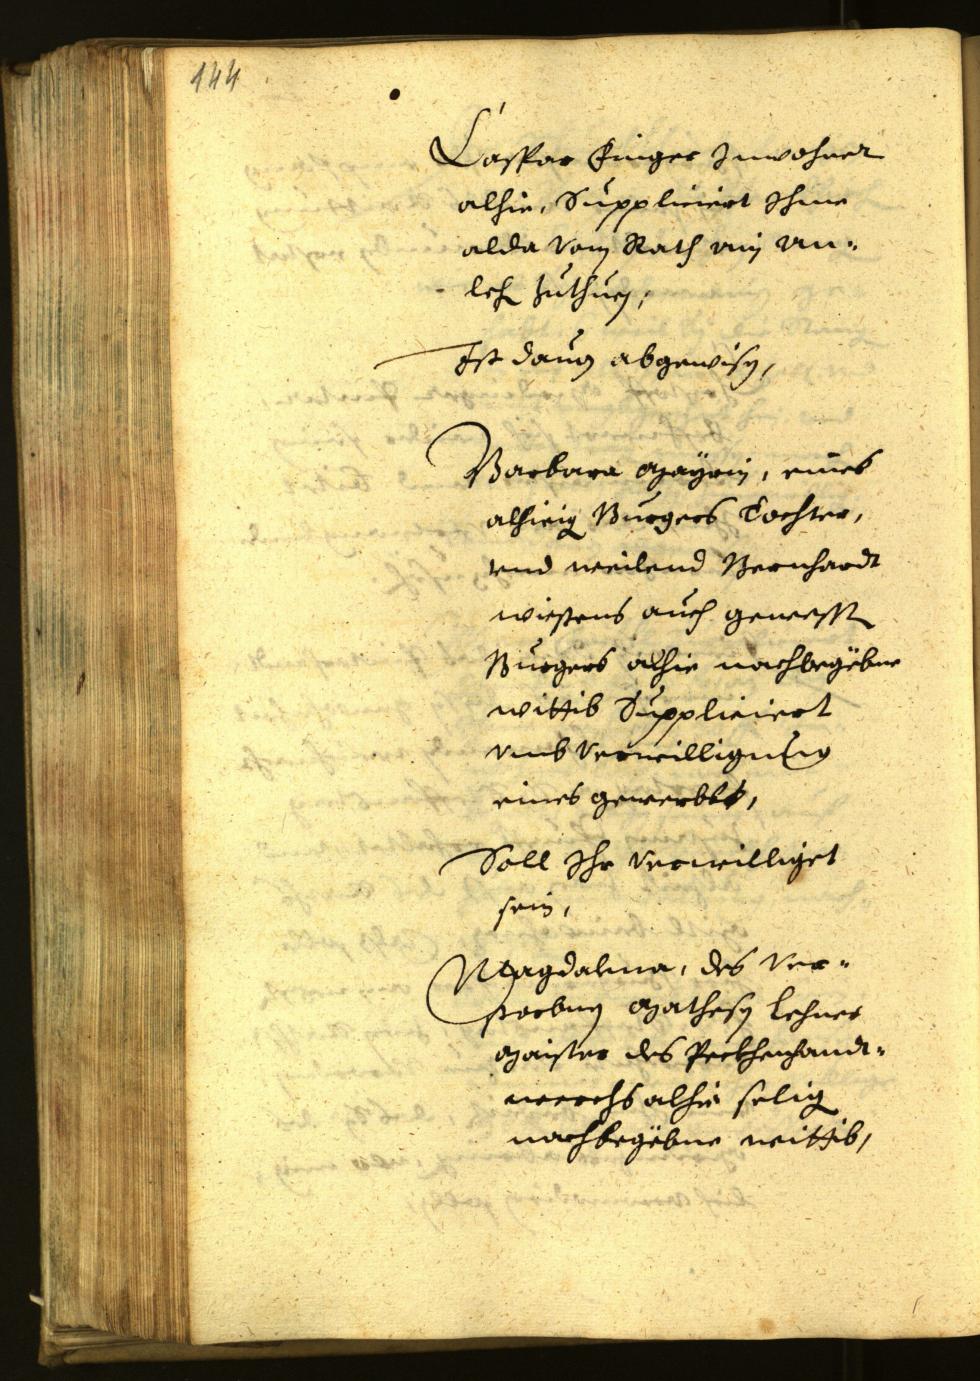 144
Caspar Einger Inwohner
alhie, Suppliciert Ihme
alda vom Rath ein An-
leh Zuthuen,
Ist dauon abgewisen,
Barbara Mayrin, eines
alhieigen Burgers Tochter,
vnd weilend Bernhardt
wiesens auch gewessten
Burgers alhie nachbegebne
wittib Suppliciert
vmb verwilligung
eines gewerbbs,
Soll Ihr verwilliget
sein,
Magdalena, des ver-
storbnen Mathesen Lehner
Maister des Peckhenhandt-
werchs alhie selig
nachbegebne wittib,